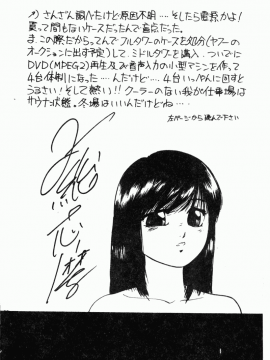 ↗) さんざん調べたけど原因不明…そしたら電源かよ!
買って間もないケースだったんで盲点だった。
ま、この際だからってんでフルタワーのケースを処分(ヤフーの
オークションに出す予定)してミドルタワーを購入、ついでに
DVD(MPEG2)再生及び音声入力の小型マシンを作って
4台体制になった…んだけど…、4台いっぺんに回すと
うるさい!そして熱い!!クーラーのない我が仕事場は
サウナ状態。冬場はいいんだけどね…
左ページから読んで下さい